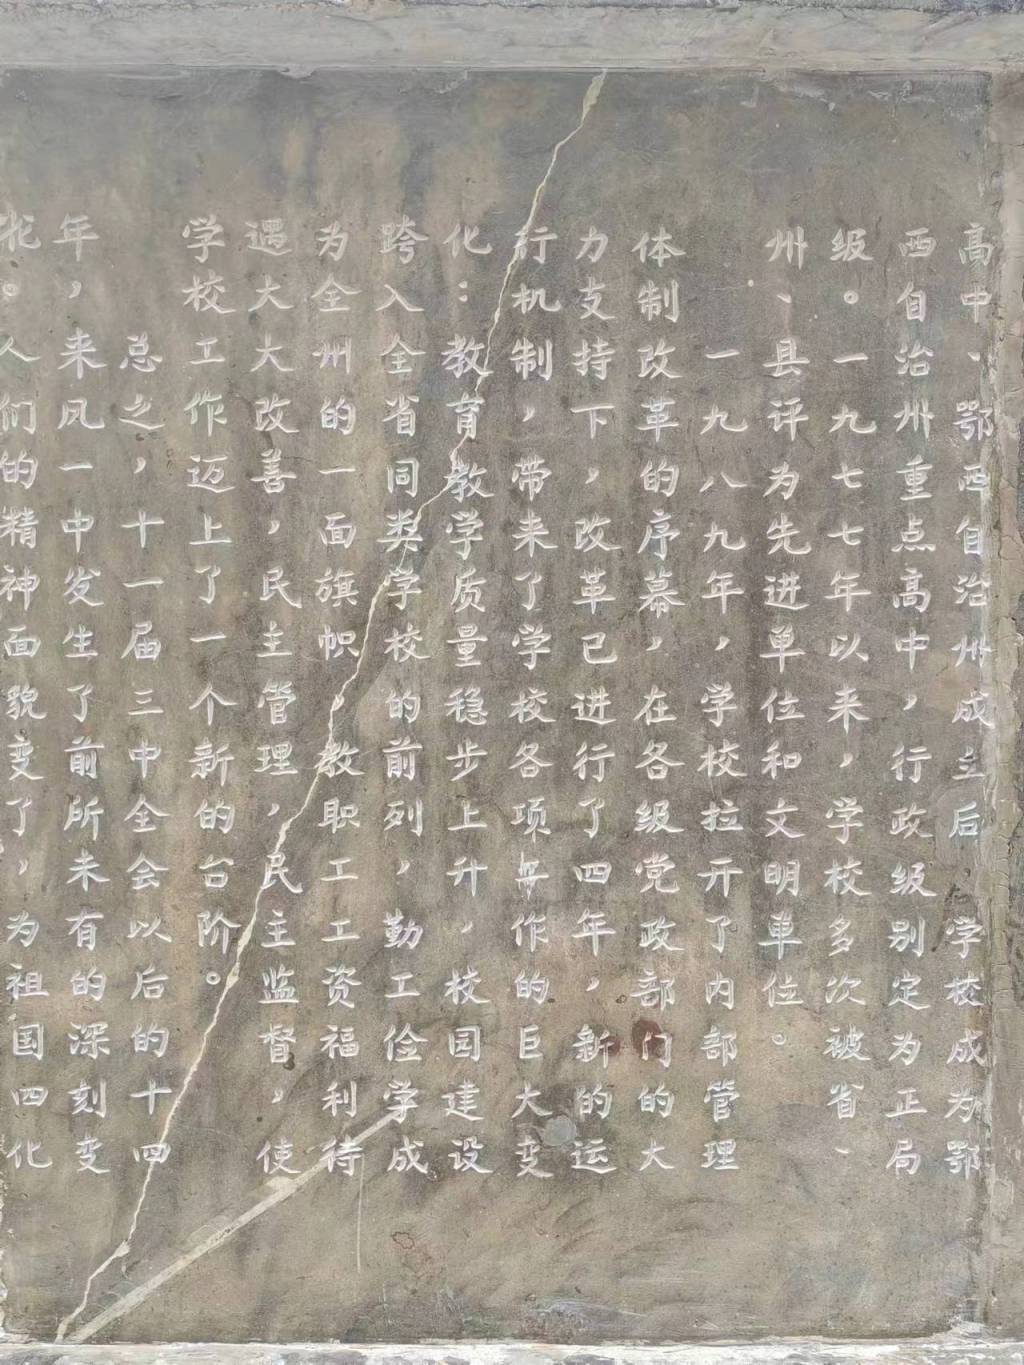 高中、鄂西自治州成立后学校成为鄂
西自治州重点高中，行政级别定为正局
级。一九七七年以来，学校多次被省、
州、县评为先进单位和文明单位。
一九八九年，学校拉开了内部管理
体制改革的序幕，在各级党政部门的大
力支持下，改革已进行了四年，新的运
行机制，带来了学校各项工作的巨大变
化：教育教学质量稳步上升，校园建设
跨入全省同类学校的前列，勤工俭学成
为全州的一面旗帜，教职工工资福利待
遇大大改善，民主管理，民主监督，使
学校工作迈上了一个新的台阶。
总之，十一届三中全会以后的十四
年，来凤一中发生了前所未有的深刻变
化。人们的精神面貌变了，为祖国四化